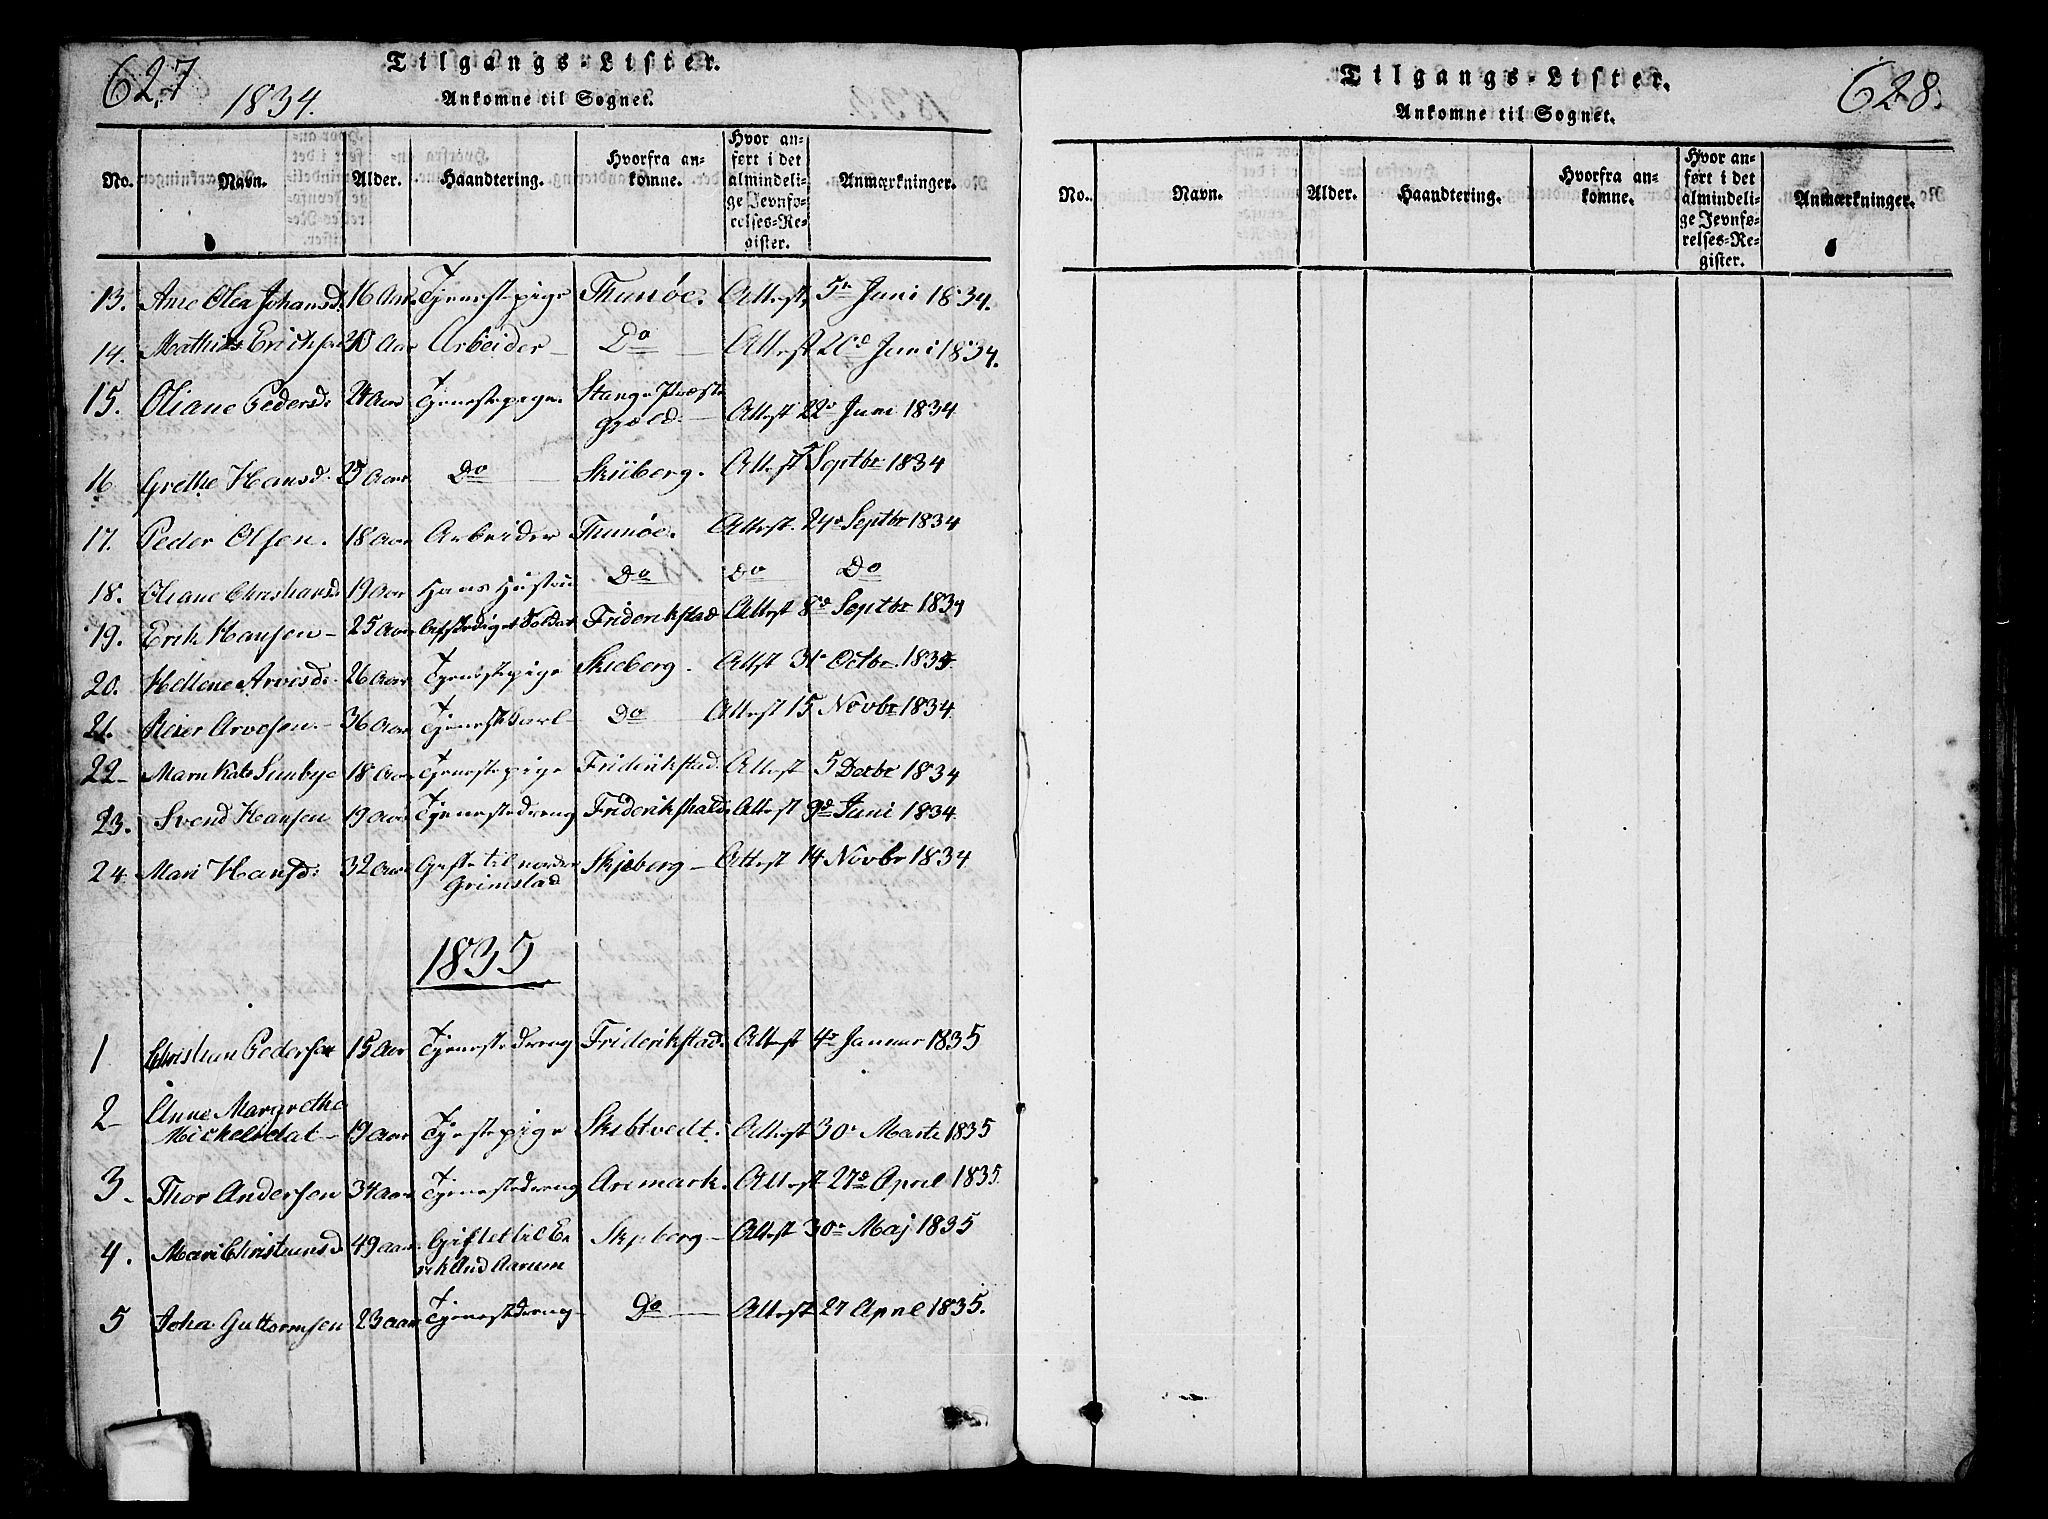 627
Tilgangs-Lister.
1834.
Ankomne til Sognet.
No. Navn. Alder. Haandtering. Hvorfra ankomne. Hvor anført i det almindelige Jevnførelses-Register. Anmærkninger.
13. Ane Olea Johansd: 16 Aar Tjenestepige Thunöe. Attest 5te Juni 1834.
14. Mathis Erichsen 20 Aar Arbeider Do Attest 20d Juni 1834.
15. Oliane Pedersd: 24 Aar Tjenestepige Stange Præste
gjeld. Attest 22d Juni 1834
16 Grethe Hansd: 25 Aar Do Skiberg. Attest Septbr 1834
17. Peder Olsen. 18 Aar Arbeider Thunöe. Attest. 24d Septbr 1834
18. Oliane Christiansd 19 Aar Hans Hustru Do Do Do
19. Erik Hansen 25 Aar Afskediget Soldat Friderikstad Attest 8d Septbr 1834
20. Hellene Arvesd: 26 Aar Tjenestepige Skieberg. Attst 31 Octbr. 1834
21. Reier Arvesen 36 Aar Tjenestkarl Do Attest 15 Novbr 1834
22 Maren Kat: Sunbye 18 Aar Tjenestepige Friderikstad Attest 5 Decbr 1834
23. Svend Hansen 19 Aar Tjenestedreng Friderikshald Attest 9d Juni 1834
24 Mari Hansd: 32 Aar Gifte til nordre
Grimstad Skjeberg Attest 14 Novbr 1834
1835
1 Christian Pedersen 15 Aar Tjenestedreng Friderikstad. Attest 4d Januar 1835
2 Anne Margrethe
Mickelsdat 19 Aar Tjenestepige Skibtvedt. Attest 30 Marts 1835
3 Thor Andersen 34 Aar Tjenestedreng Aremark. Attest 27d April 1835.
4. Mari Christiansd 49 Aar Giftet til E
rik And Aarum Skjeberg Attest 30 Maj 1835
5 Joha Guttormsen 23 Aar Tjenestdreng Do Attest 27 April 1835.
Tilgangs-Lister.
628.
Ankomne til Sognet.
No. Navn. Alder. Haandtering. Hvorfra ankomne. Hvor anført i det almindelige Jevnførelses-Register. Anmærkninger.